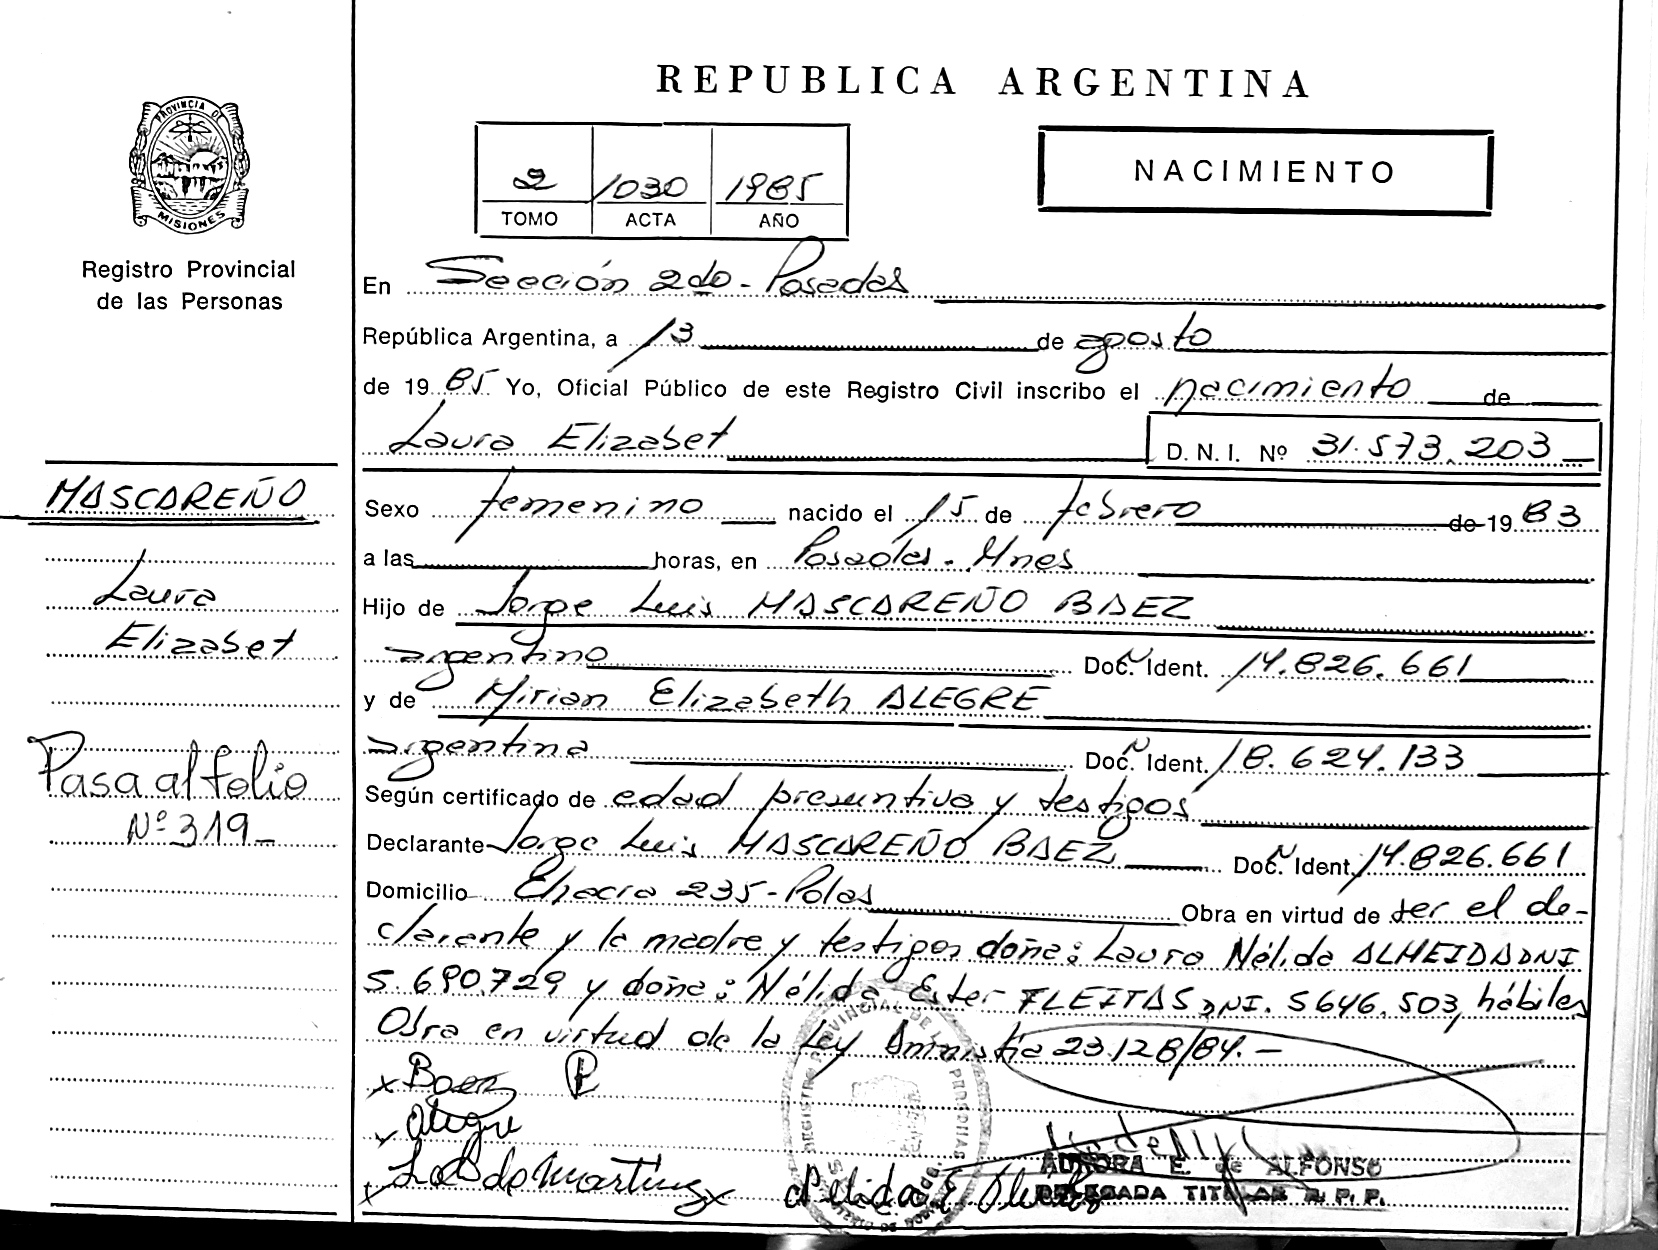 REPUBLICA ARGENTINA
PROVINCIA DE
MISIONES
Registro Provincial
de las Personas
2 1030 1985
TOMO ACTA AÑO
NACIMIENTO
En Sección 2do - Posadas
República Argentina, a 13 de agosto
de 19 85 Yo, Oficial Público de este Registro Civil inscribo el nacimiento de
Laura Elizabet D. N. I. Nº 31.573.203
MASCAREÑO
Laura
Elizabet
Pasa al folio
Nº 319
Sexo femenino nacido el 15 de febrero de 19 83
a las horas, en Posadas - Mnes
Hijo de Jorge Luis MASCAREÑO BAEZ
argentino Doc. Ident. 14.826.661
y de Mirian Elizabeth ALEGRE
argentina Doc. Ident. 18.624.133
Según certificado de edad presuntiva y testigos
Declarante Jorge Luis MASCAREÑO BAEZ Doc. Ident. 14.826.661
Domicilio Chacra 235 - Pdas Obra en virtud de ser el de-
clarante y la madre y testigos doña: Laura Nélida ALMEIDA DNI
5.690.729 y doña: Nélida Ester FLEITAS DNI. 5646.503, hábiles
Obra en virtud de la Ley Amnistía 23.128/84.-
Baez
Alegre
AURORA E. de ALFONSO
DELEGADA TITULAR R. P. P.